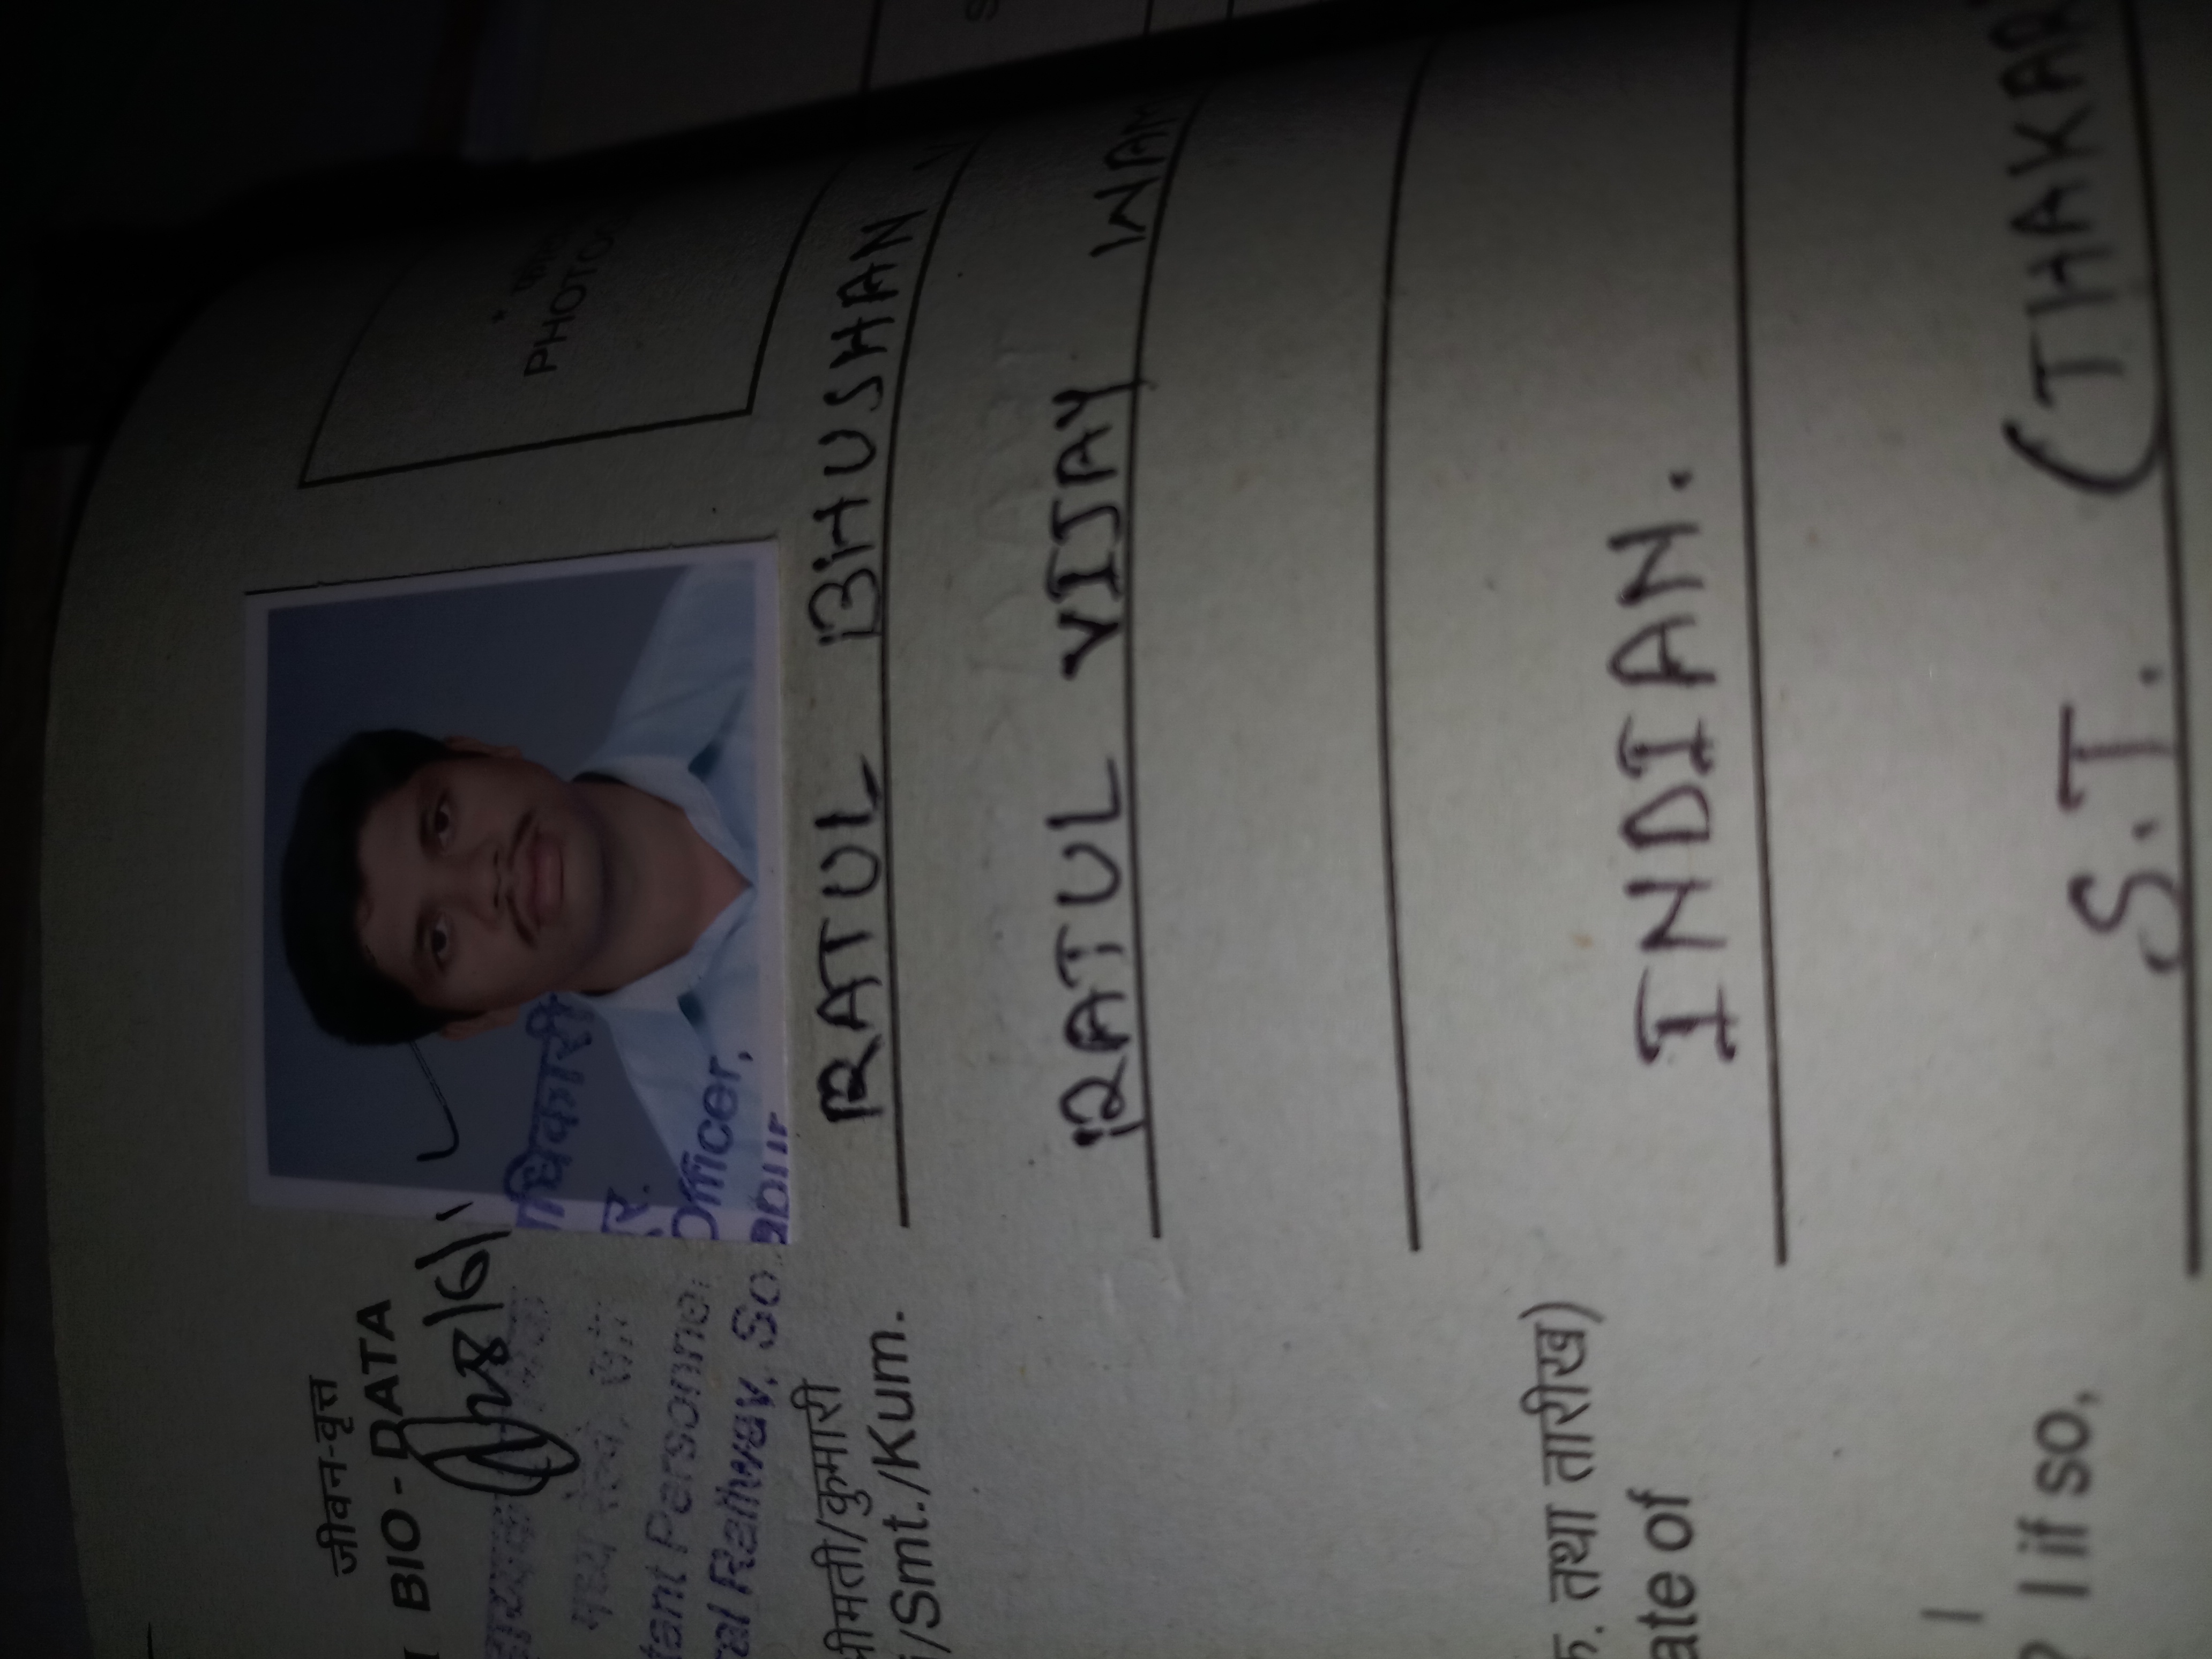 जीवन-वृत्त
BIO - DATA
28/6/1
ाधिकारी
मध्य रेल्वे,
र.
tant Personnel Officer,
ral Railway, Solapur
श्रीमती/कुमारी
i/Smt./Kum.
RATUL BHUSHAN
RATUL VIJAY WAM
क. तथा तारीख)
ate of
INDIAN.
? I if so,
S.T. (THAKAR